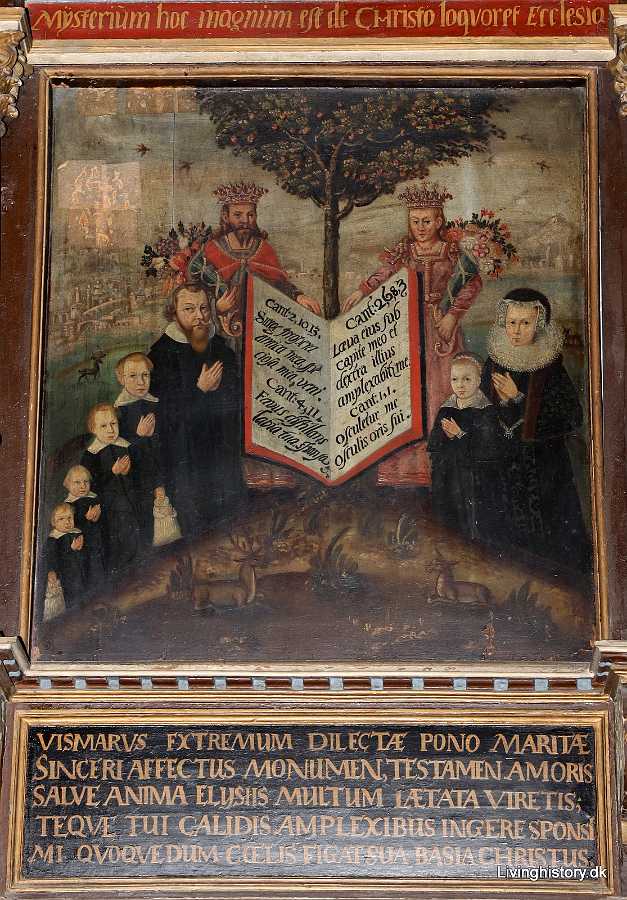 Mysterium hoc magnum est de Christo loquor et Ecclesia
Cant: 2. 10. 13.
Surge
amica mea
mea, veni.
Cant: 4. 11.
Favus
Cant: 2. 6. 8. 3
Læva eius sub
capite meo et
dextra illius
amplexabitur me.
Cant. 1. 1.
Osculetur me
osculis oris sui.
VISMARVS EXTREMUM DILECTÆ PONO MARITÆ
SINCERI AFFECTUS MONUMEN, TESTAMEN AMORIS
SALVE ANIMA ELYSIIS MULTUM LÆTATA VIRETIS;
TEQVE TUI CALIDIS AMPLEXIBUS INGERE SPONSI
MI QVOQVE DUM CŒLIS FIGAT SUA BASIA CHRISTUS.
Livinghistory.dk